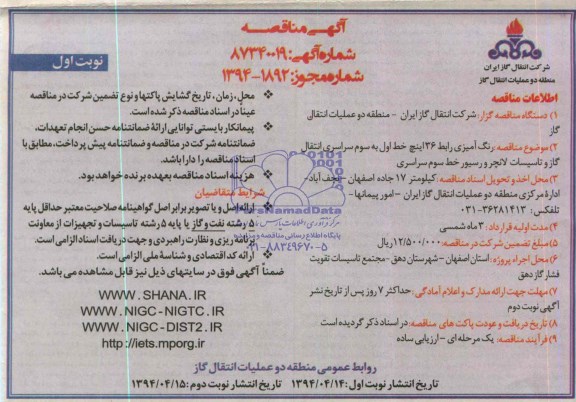 آگهی مناقصه
شماره آگهی: ۸۷۳۴۰۰۱۹
شماره مجوز: ۱۸۹۲-۱۳۹۴
نوبت اول
شرکت انتقال گاز ایران
منطقه دو عملیات انتقال گاز
اطلاعات مناقصه
۱) دستگاه مناقصه گزار: شرکت انتقال گاز ایران - منطقه دو عملیات انتقال
گاز
۲) موضوع مناقصه: رنگ آمیزی رابط ۳۶ اینچ خط اول به سوم سراسری انتقال
گاز و تاسیسات لانچر و رسیور خط سوم سراسری
۳) محل اخذ و تحویل اسناد مناقصه: کیلومتر ۱۷ جاده اصفهان - نجف آباد -
ادارۀ مرکزی منطقه دو عملیات انتقال گاز ایران - امور پیمانها -
تلفکس: ۳۶۲۸۱۴۱۲-۰۳۱
۴) مدت اولیه قرارداد: ۳ ماه شمسی
۵) مبلغ تضمین شرکت در مناقصه: ۱۲/۵۰۰/۰۰۰ ریال
۶) محل اجراء پروژه: استان اصفهان - شهرستان دهق - مجتمع تاسیسات تقویت
فشار گاز دهق
۷) مهلت جهت ارائه مدارک و اعلام آمادگی: حداکثر ۷ روز پس از تاریخ نشر
آگهی نوبت دوم
۸) تاریخ دریافت و عودت پاکت های مناقصه: در اسناد ذکر گردیده است
۹) فرآیند مناقصه: یک مرحله ای - ارزیابی ساده
محل، زمان، تاریخ گشایش پاکتها و نوع تضمین شرکت در مناقصه
عیناً در اسناد مناقصه ذکر شده است.
پیمانکار بایستی توانایی ارائۀ ضمانتنامه حسن انجام تعهدات،
ضمانتنامه شرکت در مناقصه و ضمانتنامه پیش پرداخت، مطابق با
اسناد مناقصه را دارا باشد.
هزینه اسناد مناقصه بعهده برنده خواهد بود.
شرایط متقاضیان
ارائه اصل و یا تصویر برابر اصل گواهینامه صلاحیت معتبر حداقل پایه
۵ رشته نفت و گاز یا پایه ۵ رشته تاسیسات و تجهیزات از معاونت
برنامه ریزی و نظارت راهبردی و جهت دریافت اسناد الزامی است.
ارائه کد اقتصادی و شناسۀ ملی الزامی است.
ضمناً آگهی فوق در سایتهای ذیل نیز قابل مشاهده می باشد.
WWW.SHANA.IR
WWW.NIGC-NIGTC.IR
WWW.NIGC-DIST2.IR
http://iets.mporg.ir
ParsNamadData
پایگاه اطلاع رسانی مناقصه و مزایده
۰۲۱-۸۸۳۴۹۶۷۰-۵
روابط عمومی منطقه دو عملیات انتقال گاز
تاریخ انتشار نوبت اول: ۱۳۹۴/۰۴/۱۴ تاریخ انتشار نوبت دوم: ۱۳۹۴/۰۴/۱۵